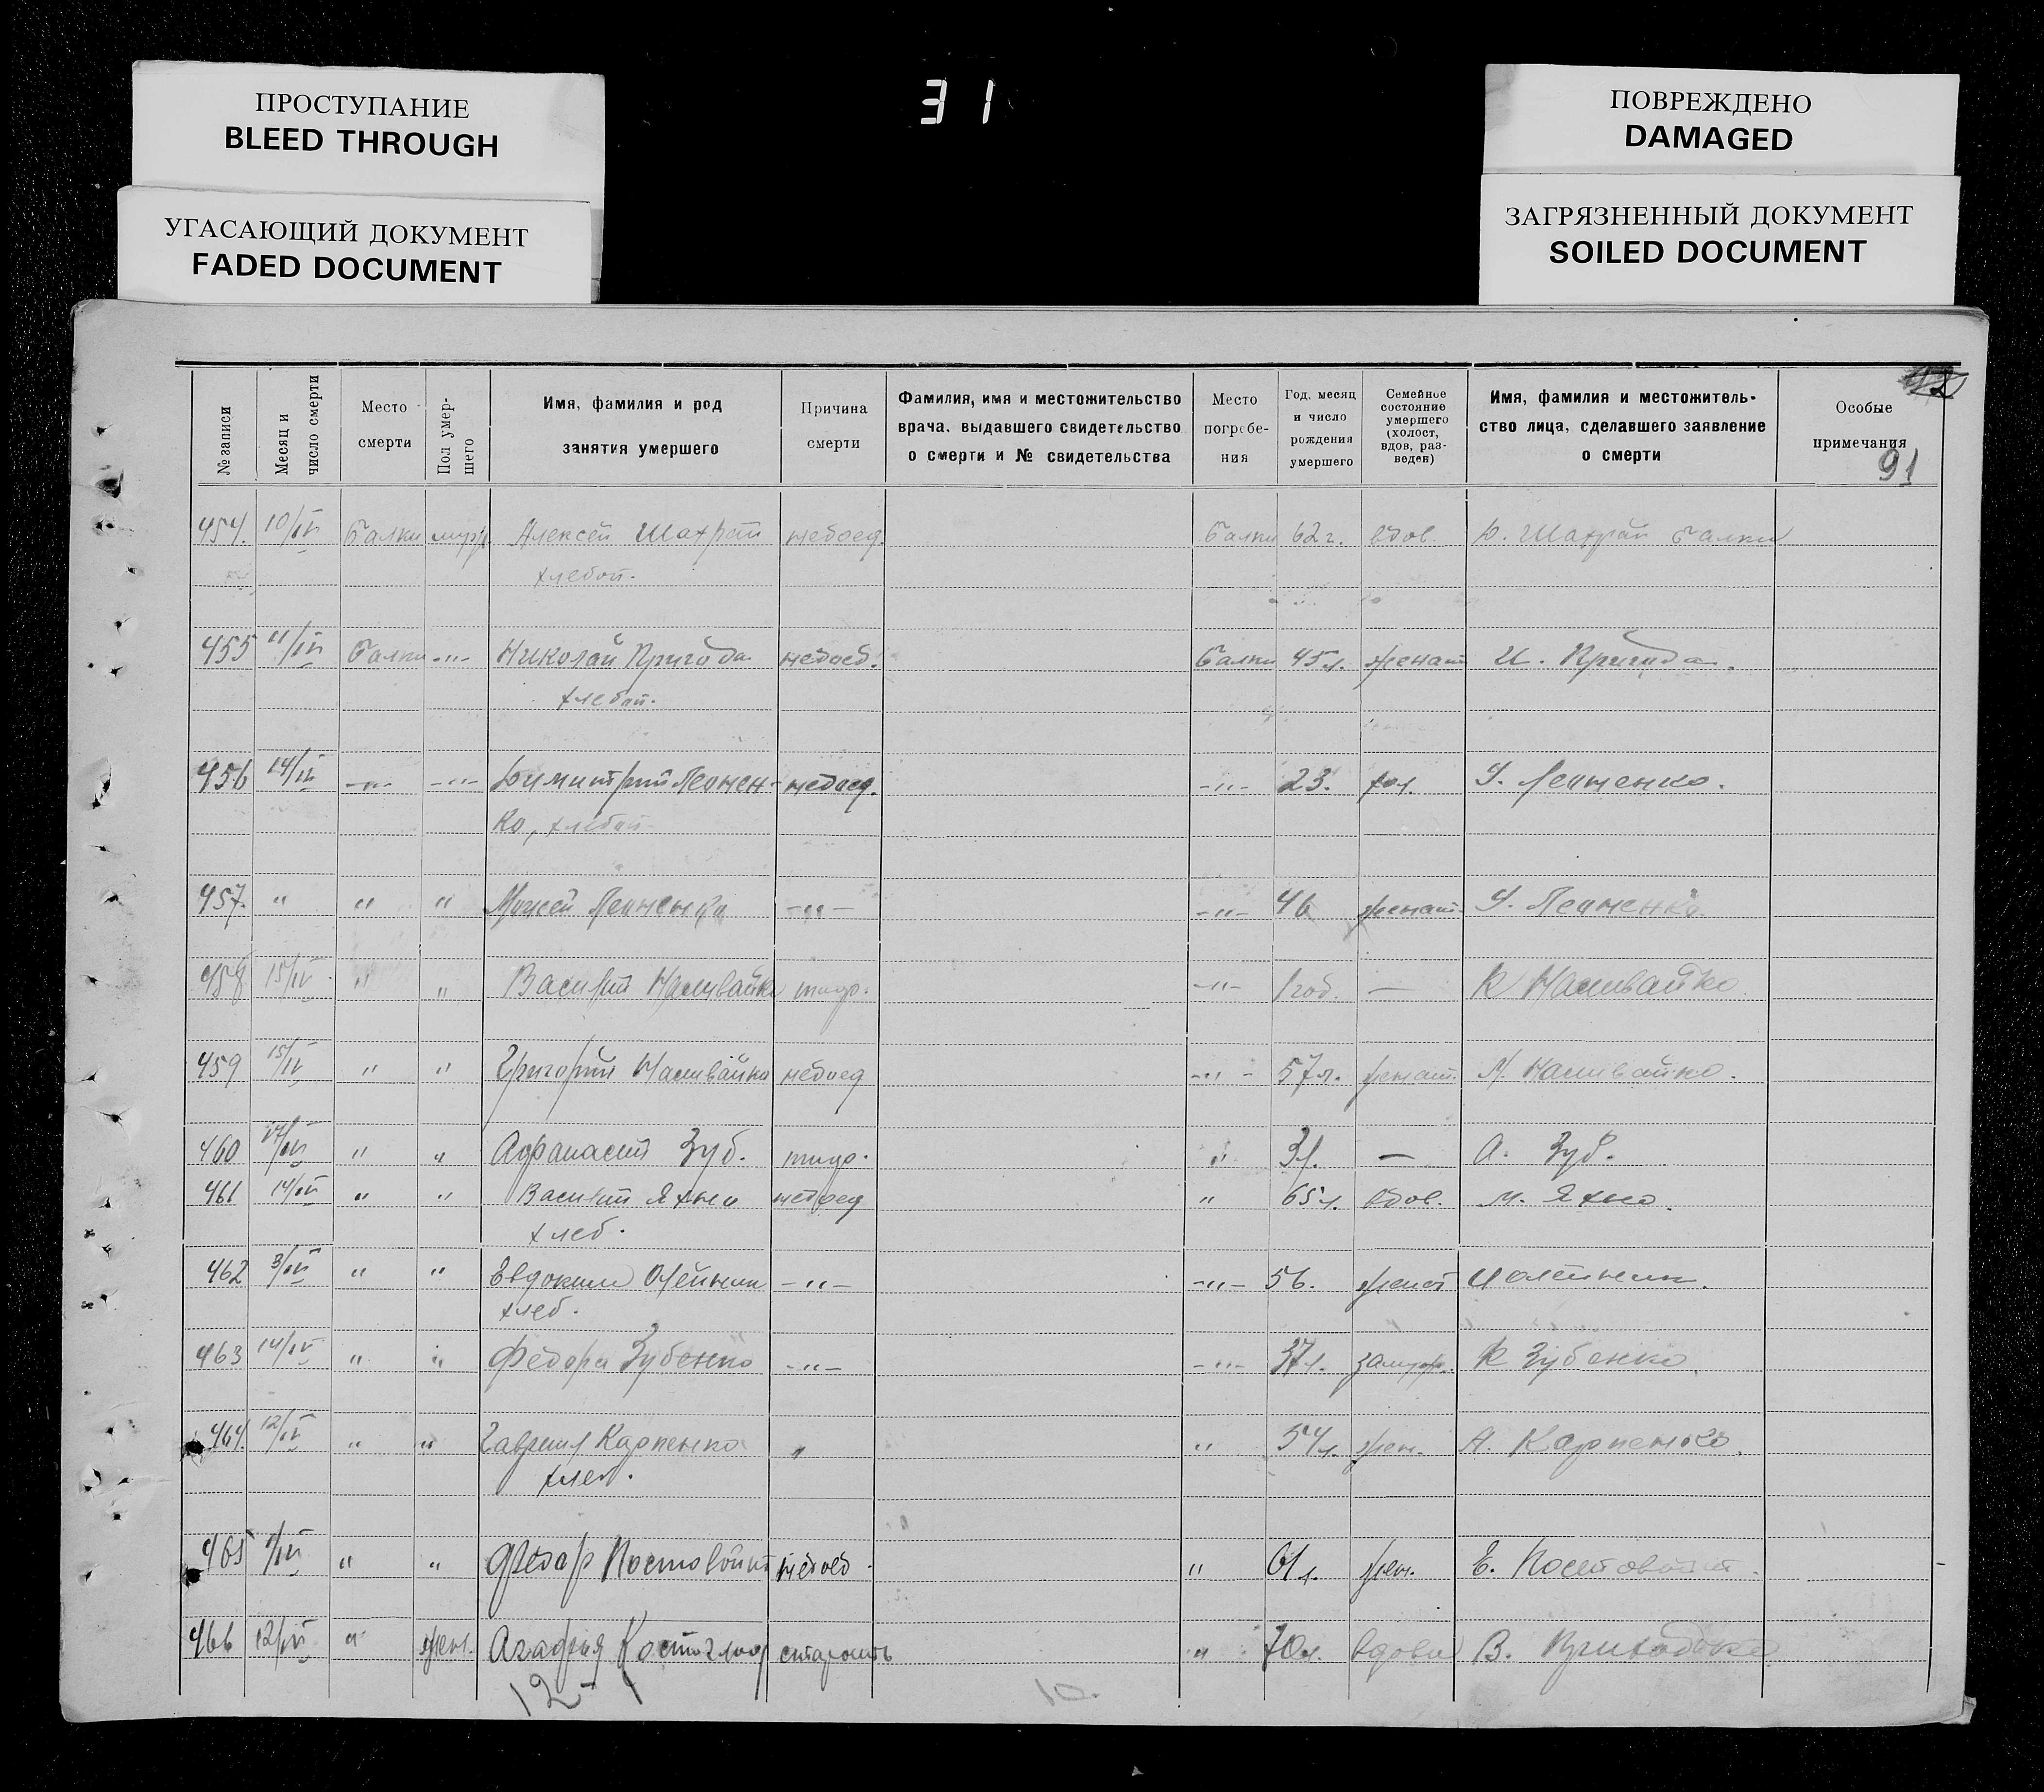 31
ПРОСТУПАНИЕ
BLEED THROUGH
УГАСАЮЩИЙ ДОКУМЕНТ
FADED DOCUMENT
ПОВРЕЖДЕНО
DAMAGED
ЗАГРЯЗНЕННЫЙ ДОКУМЕНТ
SOILED DOCUMENT
№ записи
Месяц и число смерти
Место смерти
Пол умершего
Имя, фамилия и род занятия умершего
Причина смерти
Фамилия, имя и местожительство врача, выдавшего свидетельство о смерти и № свидетельства
Место погребения
Год, месяц и число рождения умершего
Семейное состояние умершего (холост, вдов, разведен)
Имя, фамилия и местожительство лица, сделавшего заявление о смерти
Особые примечания
91
454. 10/IV Балки муж Алексей Шахрай недоед. Балки 62 г. вдов. Ю. Шахрай Балки
хлебоп.
455 11/IV Балки -"- Николай Пригода недоед. Балки 45 л. женат И. Пригода.
хлебоп.
456 14/IV -"- -"- недоед. -"- 23. хол.
ко, хлебоп
457. " " " -"- -"- 46 женат.
458 15/IV " " Василий Наливайко -"- 1 год. — К Наливайко
459 15/IV " " Григорий Наливайко недоед -"- 57 л. женат. М. Наливайко.
460 17/IV " " Афанасий Зуб. " 3 — А. Зуб.
461 14/IV " " Василий Яхно недоед " 65 л. вдов. М. Яхно.
хлеб.
462 3/IV " " Евдоким Олейник -"- -"- 56. женат И Олейник.
хлеб.
463 14/IV " " Федора Зубенко -"- -"- 37 л. замуж. К Зубенко
464. 12/IV " " Гавриил Карпенко " " 54 л. жен. А. Карпенко.
хлеб.
465 " " Федор Постовойт недоед. " 61 л. жен. Е. Постовойт.
466 12/IV " жен. Агафия старость " 70 л. вдова В.
12 - 1
10.